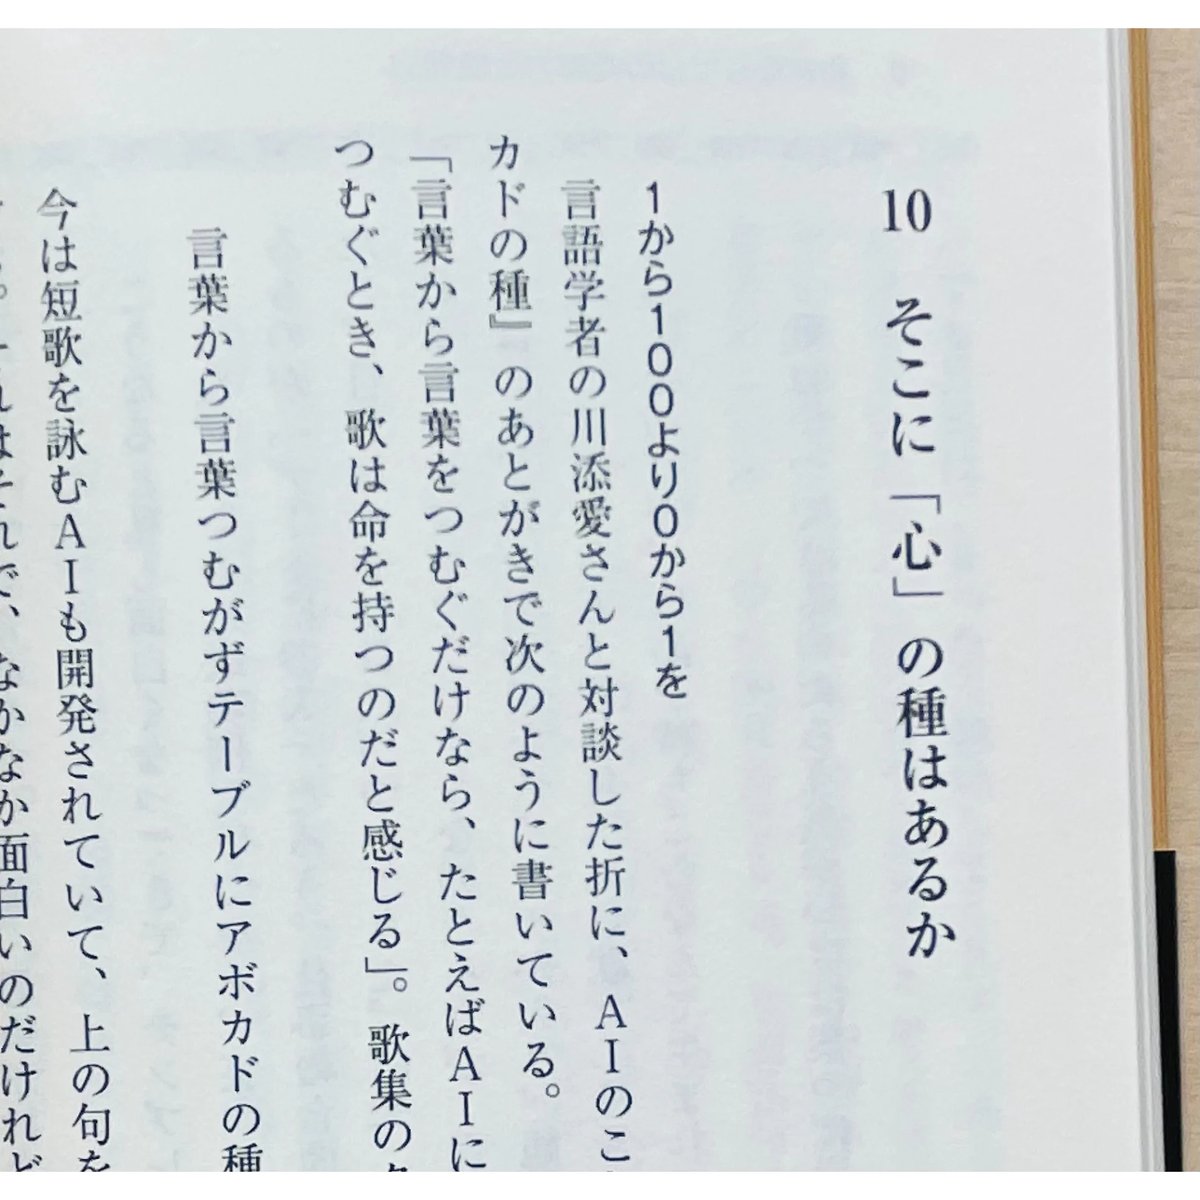 10 そこに「心」の種はあるか
1から100より0から1を
言語学者の川添愛さんと対談した折に、AIのこ
カドの種』のあとがきで次のように書いている。
「言葉から言葉をつむぐだけなら、たとえばAIに
つむぐとき、歌は命を持つのだと感じる」。歌集の
言葉から言葉つむがずテーブルにアボカドの種
今は短歌を詠むAIも開発されていて、上の句を
それはそれで、なかなか面白いのだけれど